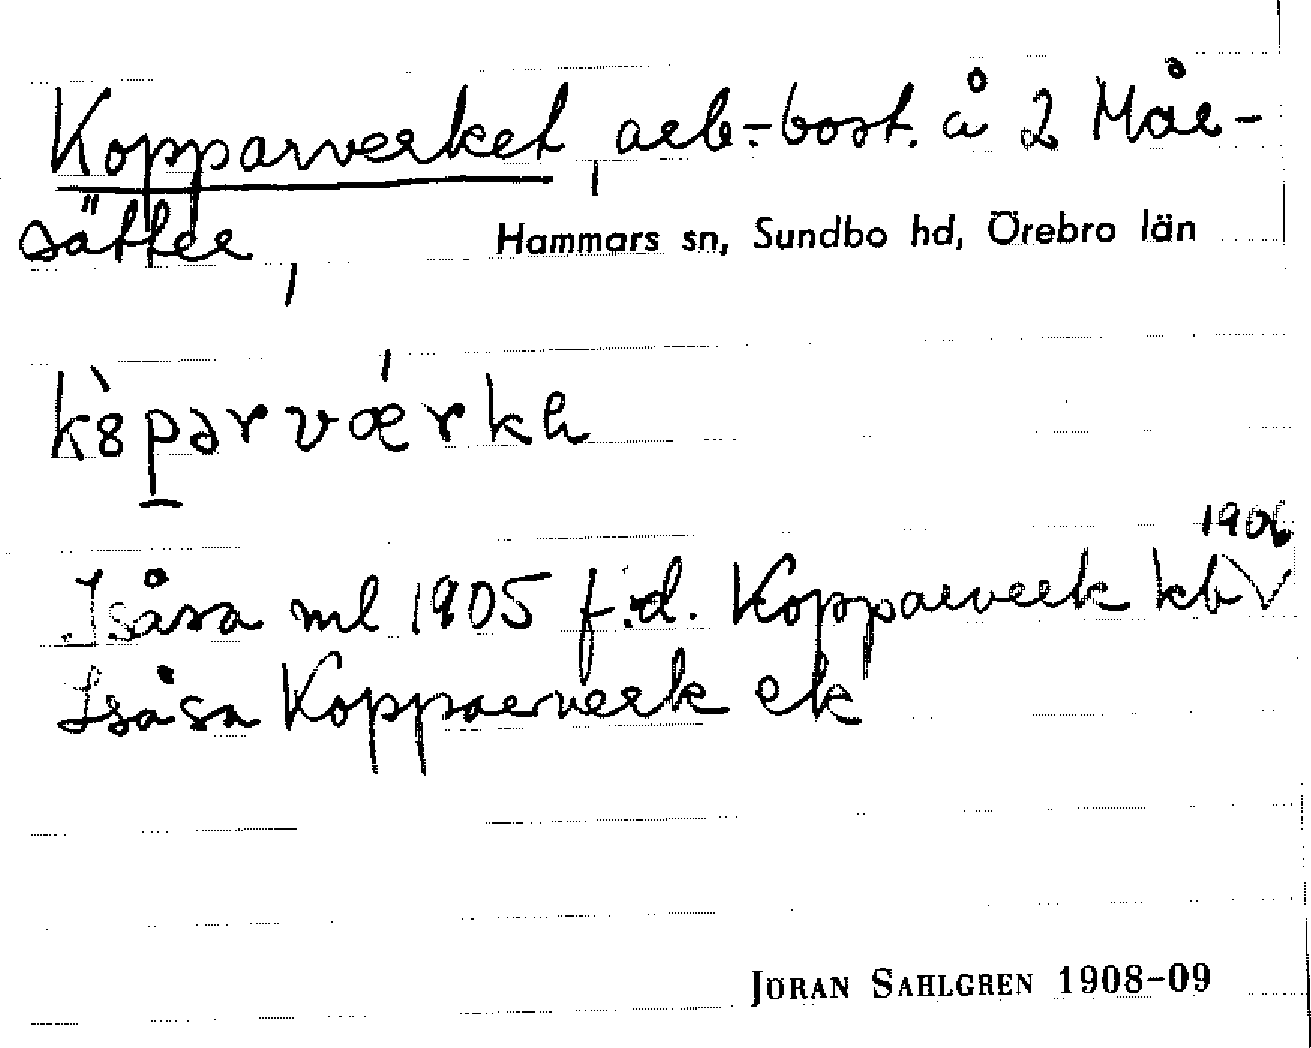 Kopparverket, arb.-bost. å 2 Mår-
sätter,
Hammars sn, Sundbo hd, Örebro län
kȍparvǽrkh
1906
Isåsa ml 1905 f.d. Kopparverk kbV
Isåsa Kopparverk ek
JÖRAN SAHLGREN 1908-09